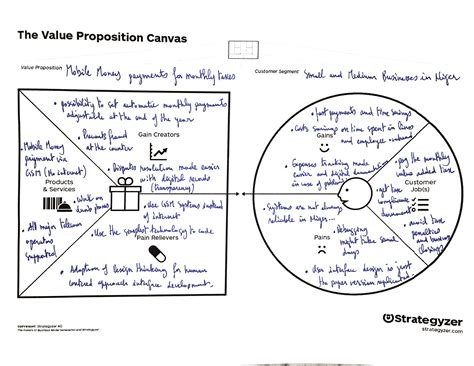 The Value Proposition Canvas
Value Proposition
Mobile Money payments for monthly taxes
Customer Segment
Small and Medium Businesses in Niger
• possibility to set automatic monthly payments
adjustable at the end of the year
• Prevents fraud
at the counter
Gain Creators
• Disputes resolution made easier
with digital records
(transparency)
• Mobile Money
payment via
GSM (No internet)
Products
& Services
• works on
dumb phones
• All major telecom
operators
supported
• Use GSM systems instead
of internet
• Use the simplest technology to code
Pain Relievers
• Adoption of Design thinking for human
centered approach interface development.
• fast payments and time savings
• Costs savings on time spent in lines
and employee
Gains
• Expenses tracking made
easier and digital
in case of
• pay the monthly
value added tax
Customer
Job(s)
• get tax
compliance
documents
• avoid tax
penalties
and business
closings
• Systems are not
reliable in Niger...
Pains
• Debugging
might take several
days
• User interface design is just
the paper version replicated
COPYRIGHT: Strategyzer AG
The makers of Business Model Generation and Strategyzer
Strategyzer
strategyzer.com